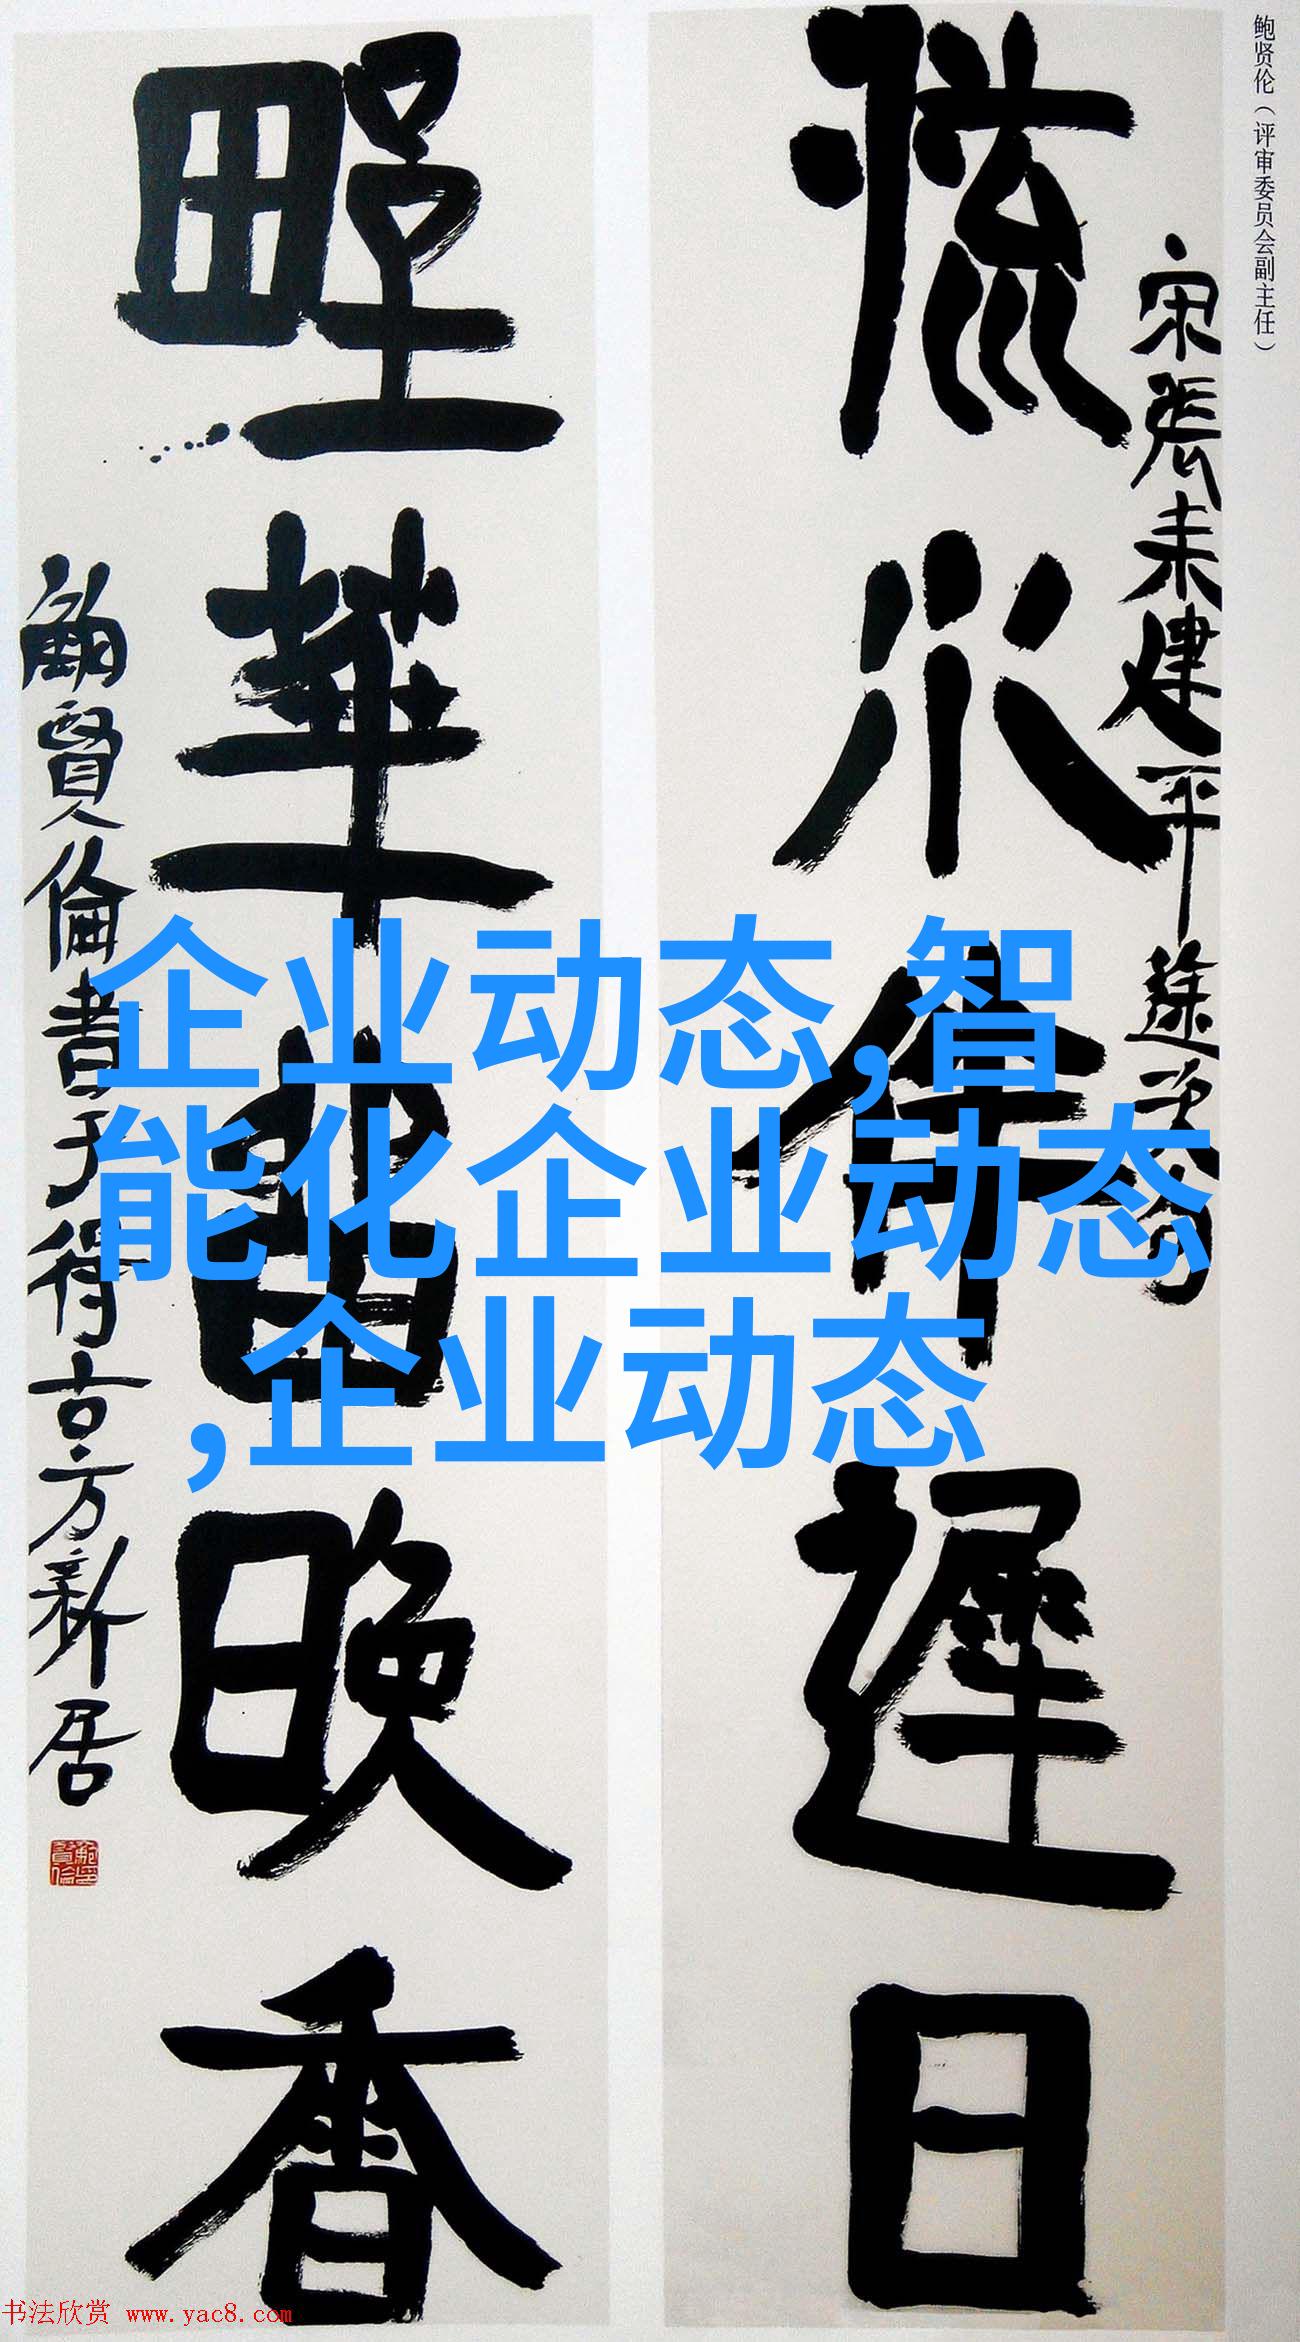 鲍贤伦（评审委员会副主任）
宋張耒建平途次句
流水伴遲日
野華留晚香
鮑賢倫書于得古方新居
企业动态,智
能化企业动态
,企业动态
书法欣赏 www.yac8.com